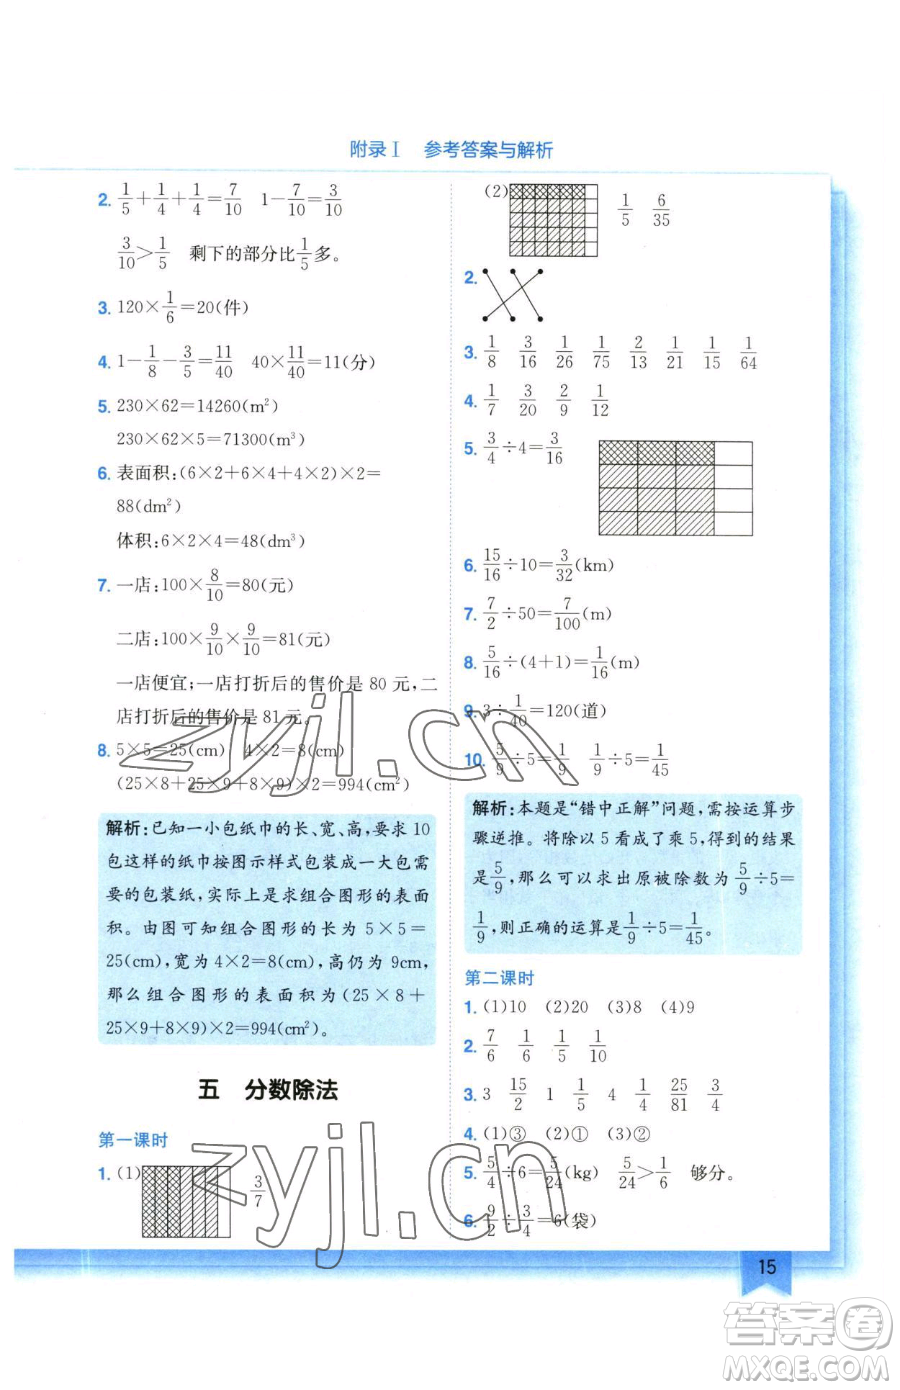 附录Ⅰ 参考答案与解析
2. 1/5+1/4+1/4=7/10 1-7/10=3/10
3/10>1/5 剩下的部分比1/5多。
3. 120×1/6=20(件)
4. 1-1/8-3/5=11/40 40×11/40=11(分)
5. 230×62=14260(m²)
230×62×5=71300(m³)
6. 表面积:(6×2+6×4+4×2)×2=
88(dm²)
体积:6×2×4=48(dm³)
7. 一店:100×8/10=80(元)
二店:100×9/10×9/10=81(元)
一店便宜;一店打折后的售价是 80 元,二
店打折后的售价是 81 元。
8. 5×5=25(cm) 4×2=8(cm)
(25×8+25×9+8×9)×2=994(cm²)
解析:已知一小包纸巾的长、宽、高,要求 10
包这样的纸巾按图示样式包装成一大包需
要的包装纸,实际上是求组合图形的表面
积。由图可知组合图形的长为 5×5=
25(cm),宽为 4×2=8(cm),高仍为 9cm,
那么组合图形的表面积为(25×8+
25×9+8×9)×2=994(cm²)。
五 分数除法
第一课时
1. (1) 3/7
(2) 1/5 6/35
2.
3. 1/8 3/16 1/26 1/75 2/13 1/21 1/15 1/64
4. 1/7 3/20 2/9 1/12
5. 3/4÷4=3/16
6. 15/16÷10=3/32(km)
7. 7/2÷50=7/100(m)
8. 5/16÷(4+1)=1/16(m)
9. 3÷1/40=120(道)
10. 5/9÷5=1/9 1/9÷5=1/45
解析:本题是“错中正解”问题,需按运算步
骤逆推。将除以 5 看成了乘 5,得到的结果
是5/9,那么可以求出原被除数为5/9÷5=
1/9,则正确的运算是1/9÷5=1/45。
第二课时
1. (1)10 (2)20 (3)8 (4)9
2. 7/6 1/6 1/5 1/10
3. 3 15/2 1 1/5 4 1/4 25/81 3/4
4. (1)③ (2)① (3)②
5. 5/4÷6=5/24(kg) 5/24>1/6 够分。
6. 9/2÷3/4=6(袋)
15
zyjl.cn
zyjl.cn
答案圈
MXQE.COM